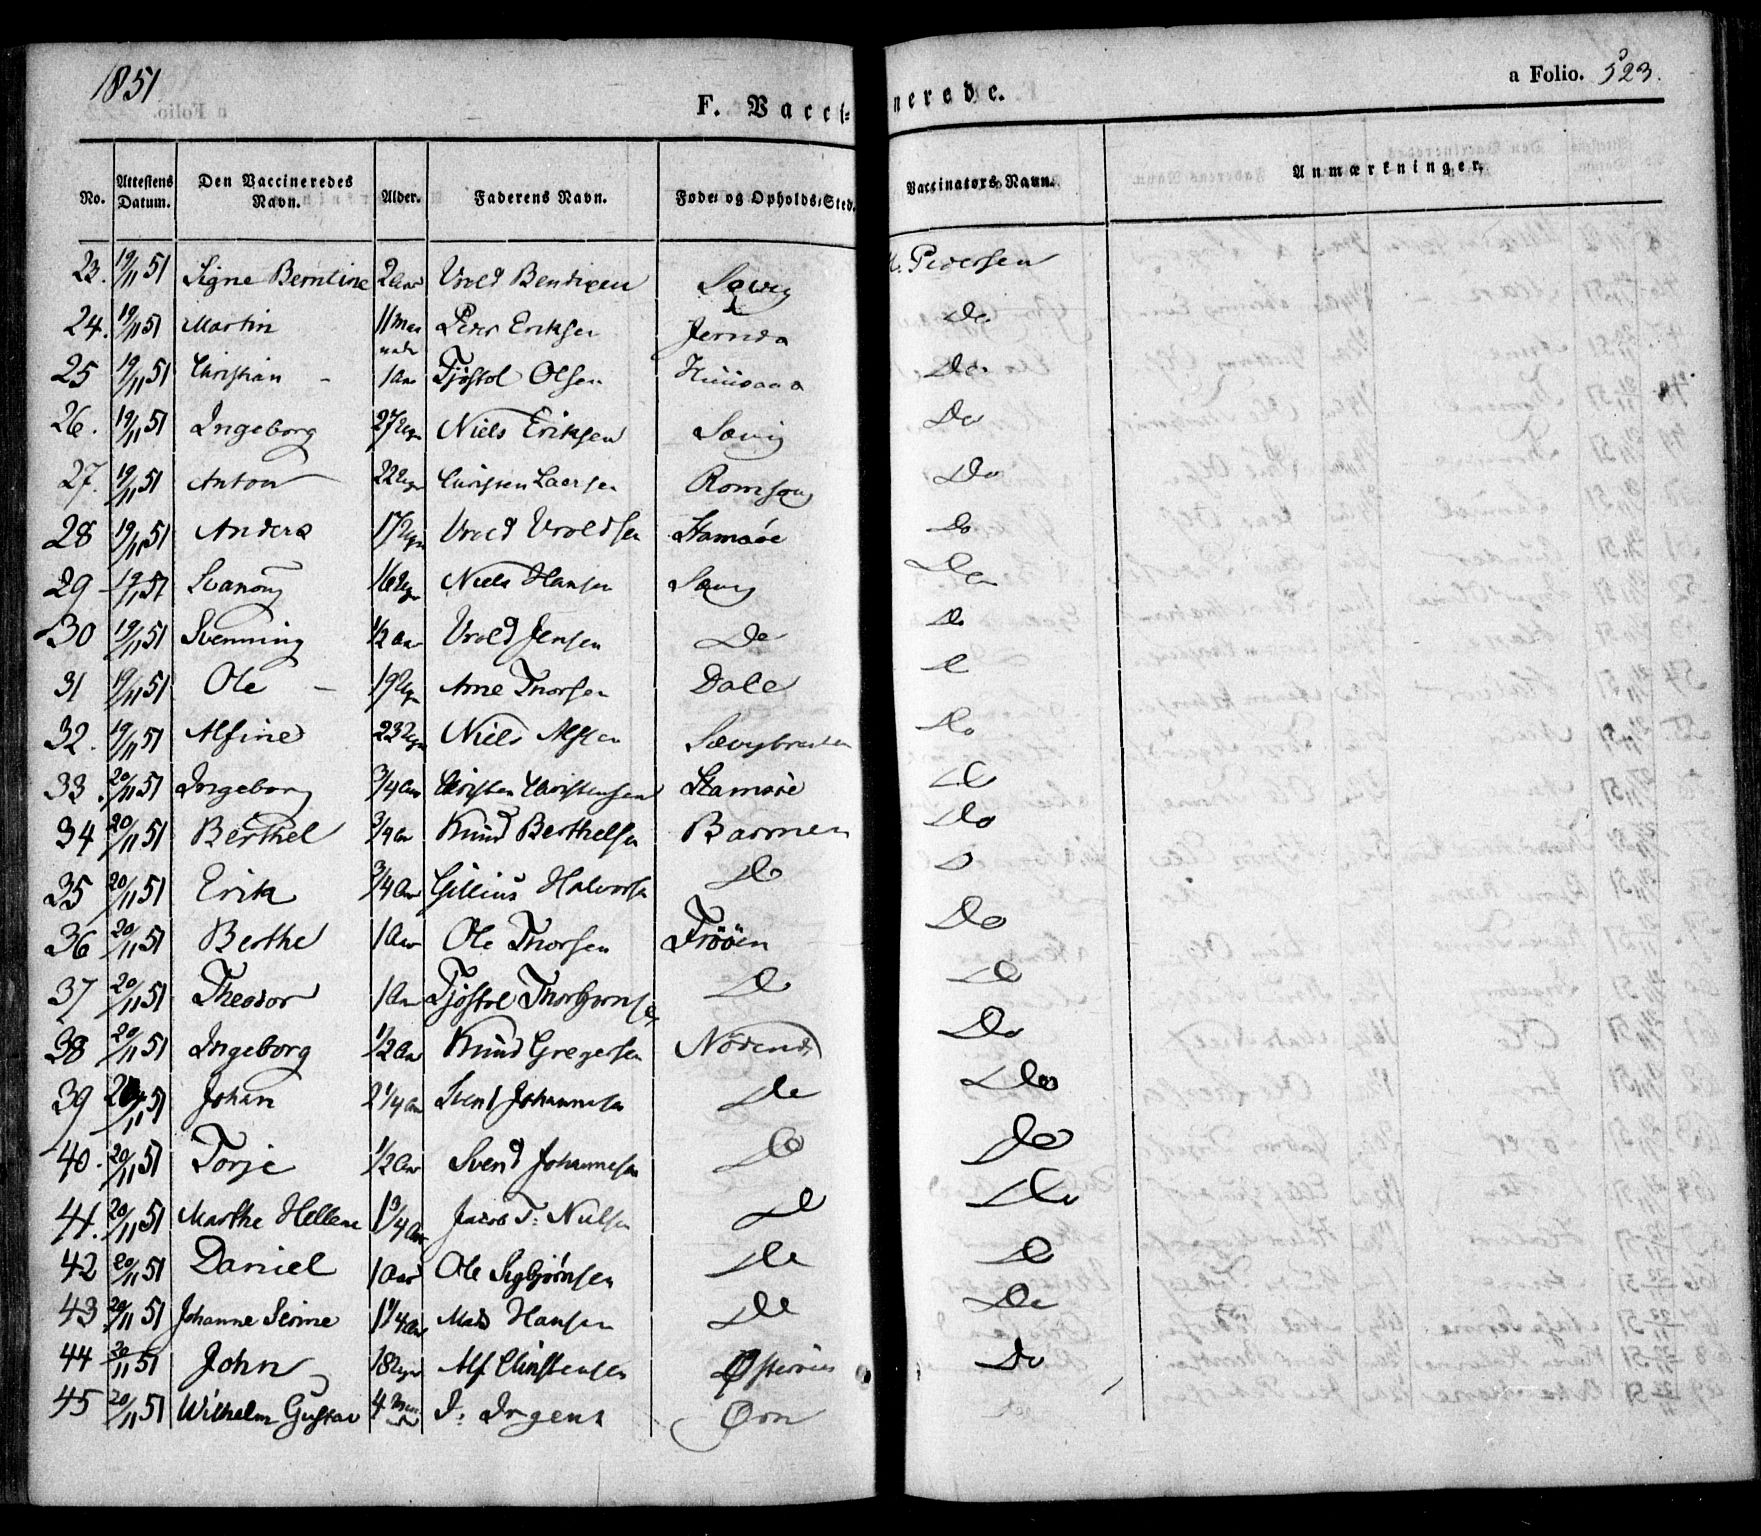 1851
F. Vacci=
nerede.
a Folio. 323.
No. Attestens Datum. Den Vaccineredes Navn. Alder. Faderens Navn. Føde= og Opholds=Sted. Vaccinators Navn. Anmærkninger.
23. 19/11 51 Signe Berntine 2 Aar Vrold Bendixen Søvig Pedersen
24. 19/11 51 Martin 11 Maa neder Peder Eriksen Do
25 19/11 51 Christian - 1 Aar Tjøstol Olsen Do
26. 19/11 51 Ingeborg 27 Uger Niels Eriksen Søvig Do
27. 19/11 51 Anton 22 Uger Christen Laersen Do
28 19/11 51 Anders 17 Uger Vrold Vroldsen Stamsøe Do
29 - 19/11 51 16 Uger Niels Hansen Søvig Do
30 19/11 51 Svenning 1/2 Aar Vrold Jensen Do Do
31 19/11 51 Ole - 19 Uger Arne Thorsen Dale Do
32. 19/11 51 Alfine 23 Uger Niels Alfsen Do
33. 20/11 51 Ingeborg 3/4 Aar Christen Christensen Stamsøe Do
34 20/11 51 Berthel 3/4 Aar Knud Berthelsen Barmen Do
35 20/11 51 Erik 3/4 Aar Gillius Halvorsen Do Do
36 20/11 51 Berthe 1 Aar Ole Thorsen Frøøen Do
37 20/11 51 Theodor 1 Aar Tjøstol Thorbjørnsen Do Do
38 20/11 51 Ingeborg 1/2 Aar Knud Gregersen Do
39 20/11 51 Johan 2 1/4 Aar Svend Johannesen Do Do
40. 20/11 51 Torje 1/2 Aar Svend Johannesen Do Do
41. 20/11 51 Marthe Hellene 1 3/4 Aar Jacob T: Nielsen Do Do
42 20/11 51 Daniel 1 Aar Ole Sigbjørnsen Do Do
43. 20/11 51 Johanne Serine 1 1/4 Aar Mads Hansen Do Do
44 20/11 51 John 18 Uger Alf Christensen Do
45 20/11 51 Wilhelm Gustav 4 J: Jrgens